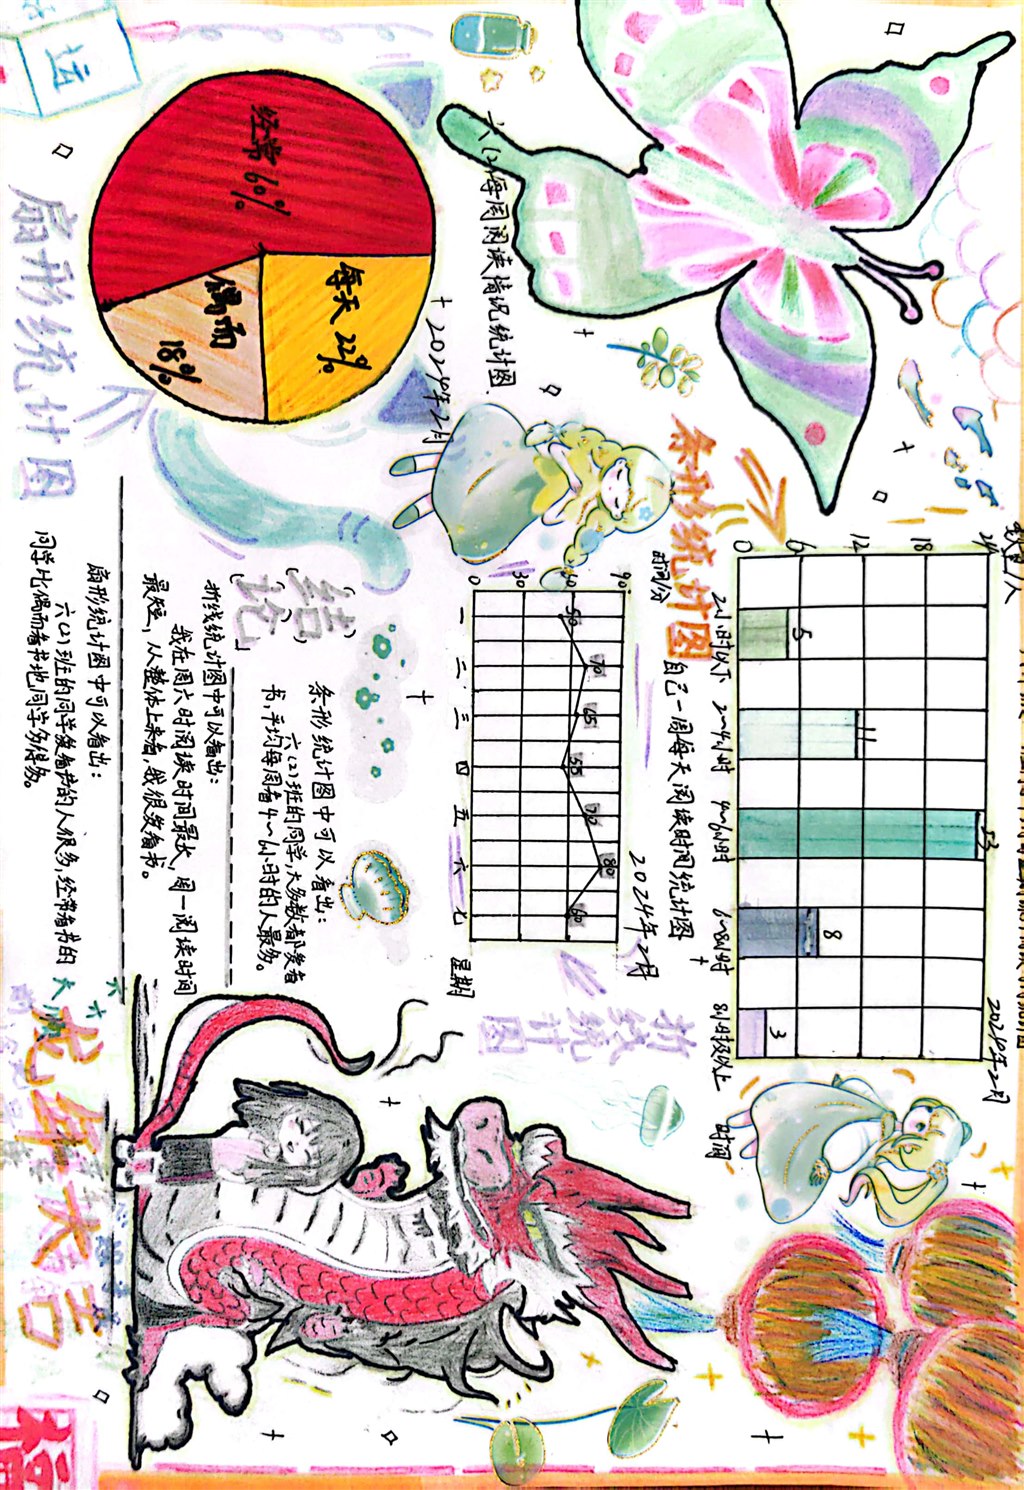 扇形统计图
六(2)每周阅读情况统计图
2024年2月
经常60%
每天22%
偶而
18%
条形统计图
数量/人
2024年2月
24
18
12
6
0
5
11
23
8
3
2小时以下
2~4小时
4~6小时
6~8小时
8小时及以上
时间
自己一周每天阅读时间统计图
2024年2月
时间/分
90
60
30
0
50
70
65
55
70
80
60
一
二
三
四
五
六
七
星期
折线统计图
结论
条形统计图中可以看出:
六(2)班的同学大多数都爱看
书,平均每周看4~6小时的人最多。
折线统计图中可以看出:
我在周六时阅读时间最长,周一阅读时间
最短,从整体上来看,我很爱看书。
扇形统计图中可以看出:
六(2)班的同学爱看书的人很多,经常看书的
同学比偶而看书地同学多得多。
龙年大吉
福